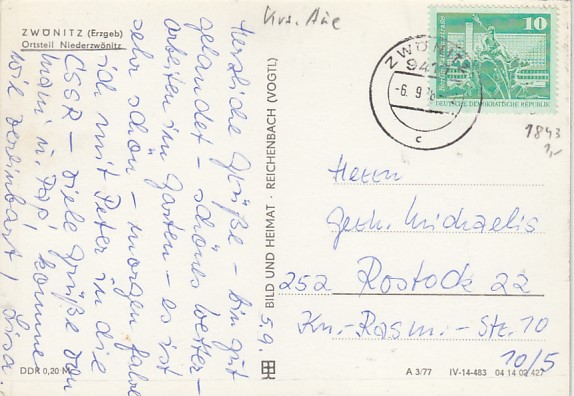 ZWÖNITZ (Erzgeb)
Ortsteil Niederzwönitz
Krs. Aue
5.9.
Herzliche Grüße – bin gut
gelandet – schönes Wetter –
arbeiten im Garten – es ist
sehr schön – morgen fahre
ich mit Peter in die
ČSSR – viele Grüße von
Mami u. Papi, komme
wie vereinbart, Lisa.
DDR 0,20 M
BILD UND HEIMAT · REICHENBACH (VOGTL)
ZWÖNITZ
-6. 9.
c
10
DEUTSCHE DEMOKRATISCHE REPUBLIK
1843
1,-
Herrn
Gerh. Michaelis
252 Rostock 22
Kn.-Rasm.-Str. 10
10/5
A 3/77 IV-14-483 04 14 02 427